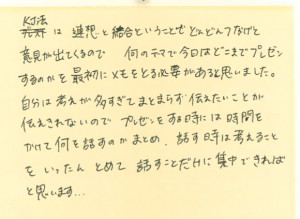 KJ法
は 連想 と 結合 ということで どんどん つなげと
意見が出てくるので 何のテマで今日はどこまでプレゼン
するのかを 最初に メモをとる必要があると思いました。
自分は考えが多すぎてまとまらず伝えたいことが
伝えきれないので プレゼンをする時には 時間を
かけて何を話すのかまとめ、話す時は考えること
をいったん とめて 話すことだけに集中できれば
と思います...